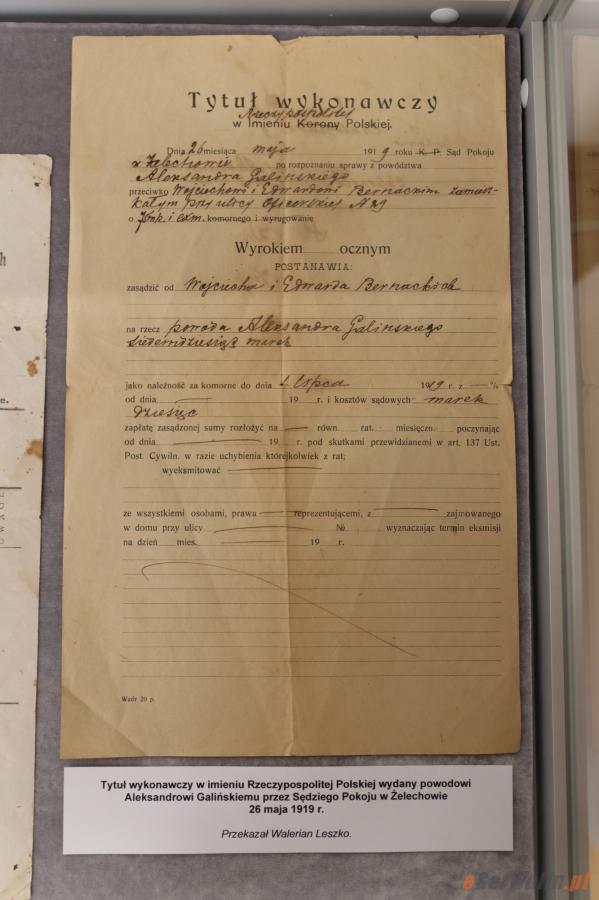 Tytuł wykonawczy
Rzeczypospolitej
w Imieniu Korony Polskiej.
Dnia 26 miesiąca maja 1919 roku K. P. Sąd Pokoju
w Żelechowie po rozpoznaniu sprawy z powództwa
Aleksandra Galińskiego
przeciwko Wojciechowi i Edwardowi Bernackim zamiesz-
kałym przy ulicy Oficerskiej N 29
o 70 mk. i exm. komornego i wyrugowanie
Wyrokiem ocznym
POSTANAWIA:
zasądzić od Wojciecha i Edwarda Bernackich
na rzecz powoda Aleksandra Galińskiego
siedemdziesiąt marek
jako należność za komorne do dnia 1 Lipca 1919 r. z — %
od dnia — 19 r. i kosztów sądowych marek
dziesięć
zapłatę zasądzonej sumy rozłożyć na — równ. rat. - miesięczn. poczynając
od dnia — 19 r. pod skutkami przewidzianemi w art. 137 Ust.
Post. Cywiln. w razie uchybienia którejkolwiek z rat;
wyeksmitować —
ze wszystkiemi osobami, prawa — reprezentującemi, z — zajmowanego
w domu przy ulicy — № wyznaczając termin eksmisji
na dzień mies. 19 r.
Wzór 20 p.
Tytuł wykonawczy w imieniu Rzeczypospolitej Polskiej wydany powodowi
Aleksandrowi Galińskiemu przez Sędziego Pokoju w Żelechowie
26 maja 1919 r.
Przekazał Walerian Leszko.